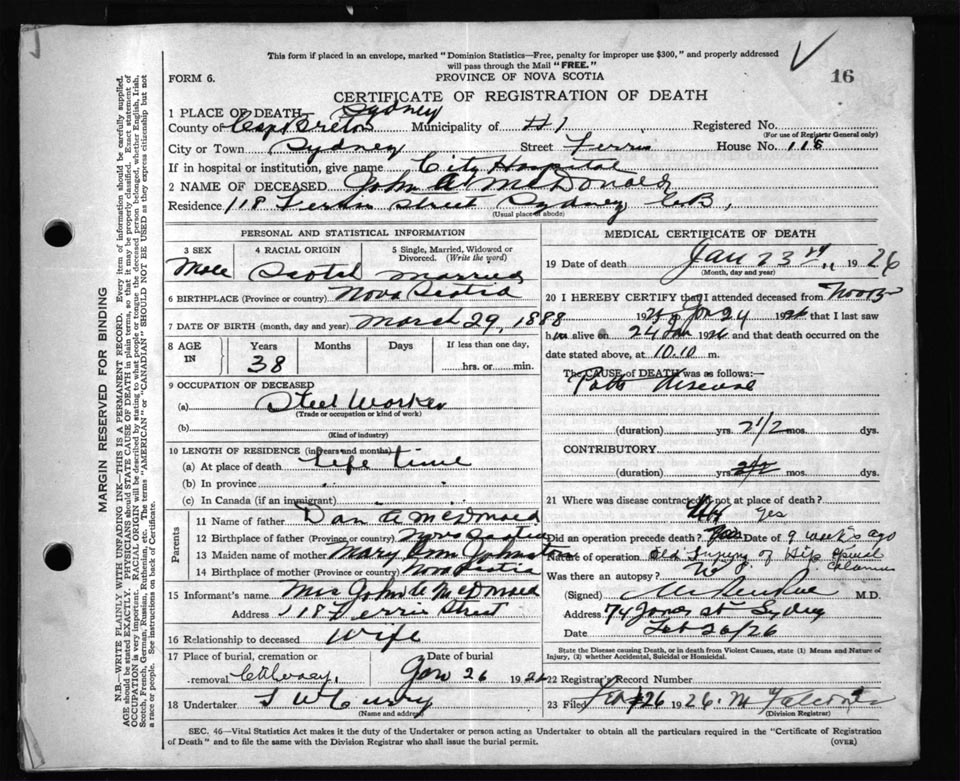 This form if placed in an envelope, marked "Dominion Statistics—Free, penalty for improper use $300," and properly addressed
will pass through the Mail "FREE."
FORM 6.
PROVINCE OF NOVA SCOTIA
16
CERTIFICATE OF REGISTRATION OF DEATH
1 PLACE OF DEATH Sydney
County of Cape Breton Municipality of #1 Registered No.
(For use of Registrar General only)
City or Town Sydney Street Ferris House No. 118
If in hospital or institution, give name City Hospital
2 NAME OF DECEASED John A McDonald
Residence 118 Ferris Street Sydney C.B,
(Usual place of abode)
PERSONAL AND STATISTICAL INFORMATION
3 SEX 4 RACIAL ORIGIN 5 Single, Married, Widowed or Divorced. (Write the word)
Male Scotch Married
6 BIRTHPLACE (Province or country) Nova Scotia
7 DATE OF BIRTH (month, day and year) March 29, 1888
8 AGE IN Years Months Days If less than one day,
38 hrs. or min.
9 OCCUPATION OF DECEASED
(a) Steel Worker
(Trade or occupation or kind of work)
(b)
(Kind of industry)
10 LENGTH OF RESIDENCE (in years and months)
(a) At place of death Life time
(b) In province
(c) In Canada (if an immigrant)
Parents
11 Name of father Dan A McDonald
12 Birthplace of father (Province or country) Nova Scotia
13 Maiden name of mother Mary Ann Johnston
14 Birthplace of mother (Province or country) Nova Scotia
15 Informant's name Mrs John A McDonald
Address 118 Ferris Street
16 Relationship to deceased Wife
17 Place of burial, cremation or Date of burial
removal Calvary, Jan 26 1926
18 Undertaker
(Name and address)
MEDICAL CERTIFICATE OF DEATH
19 Date of death Jan 23 19 26
(Month, day and year)
20 I HEREBY CERTIFY that I attended deceased from
1925 to Jan 24 1926 that I last saw
him alive on 24 Jan 1926 and that death occurred on the
date stated above, at 10.10 m.
The CAUSE of DEATH was as follows:—
Potts Disease
(duration) yrs. 2 1/2 mos. dys.
CONTRIBUTORY
(duration) yrs. mos. dys.
21 Where was disease contracted if not at place of death?
yes
Did an operation precede death? Date of 9 weeks ago
Nature of operation Old Injury of Hip Spinal
Was there an autopsy? No
(Signed) M.D.
Address 74 Jones St Sydney
Date Feb 26/26
State the Disease causing Death, or in death from Violent Causes, state (1) Means and Nature of
Injury, (2) whether Accidental, Suicidal or Homicidal.
22 Registrar's Record Number
23 Filed 26 1926.
(Division Registrar)
SEC. 46—Vital Statistics Act makes it the duty of the Undertaker or person acting as Undertaker to obtain all the particulars required in the "Certificate of Registration
of Death" and to file the same with the Division Registrar who shall issue the burial permit.
(OVER)
MARGIN RESERVED FOR BINDING
N.B.—WRITE PLAINLY WITH UNFADING INK—THIS IS A PERMANENT RECORD. Every item of information should be carefully supplied.
AGE should be stated EXACTLY. PHYSICIANS should STATE CAUSE OF DEATH in plain terms, so that it may be properly classified. Exact statement of
OCCUPATION is very important. RACIAL ORIGIN will be described by stating to what people or tongue the deceased person belonged, whether English, Irish,
Scotch, French, German, Russian, Ruthenian, etc. The terms "AMERICAN" or "CANADIAN" SHOULD NOT BE USED as they express citizenship but not
a race or people. See instructions on back of Certificate.